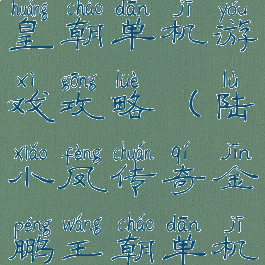 huáng cháo dān jī yóu
皇朝单机游
xì gōng lüè lù
戏攻略（陆
xiǎo fèng chuán qí jīn
小凤传奇金
péng wáng cháo dān jī
鹏王朝单机